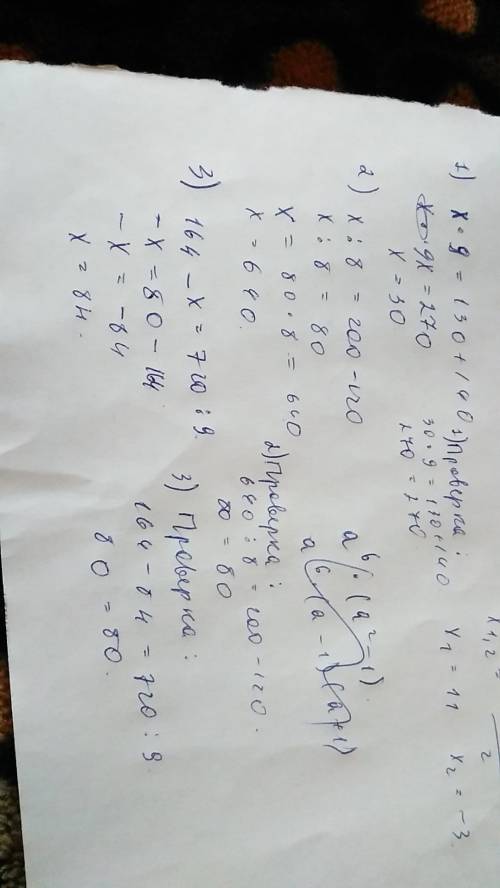 1) x · 9 = 130 + 140
9x = 270
x = 30
1) Проверка:
30 · 9 = 130 + 140
270 = 270
2) x : 8 = 200 - 120
x : 8 = 80
x = 80 · 8 = 640
x = 640.
2) Проверка:
640 : 8 = 200 - 120.
80 = 80
3) 164 - x = 720 : 9.
- x = 80 - 164
- x = - 84
x = 84.
3) Проверка:
164 - 84 = 720 : 9.
80 = 80.
x1,2 =
2
x1 = 11 x2 = -3
a⁶ : (a² - 1)
a⁶ (a - 1)(a + 1)